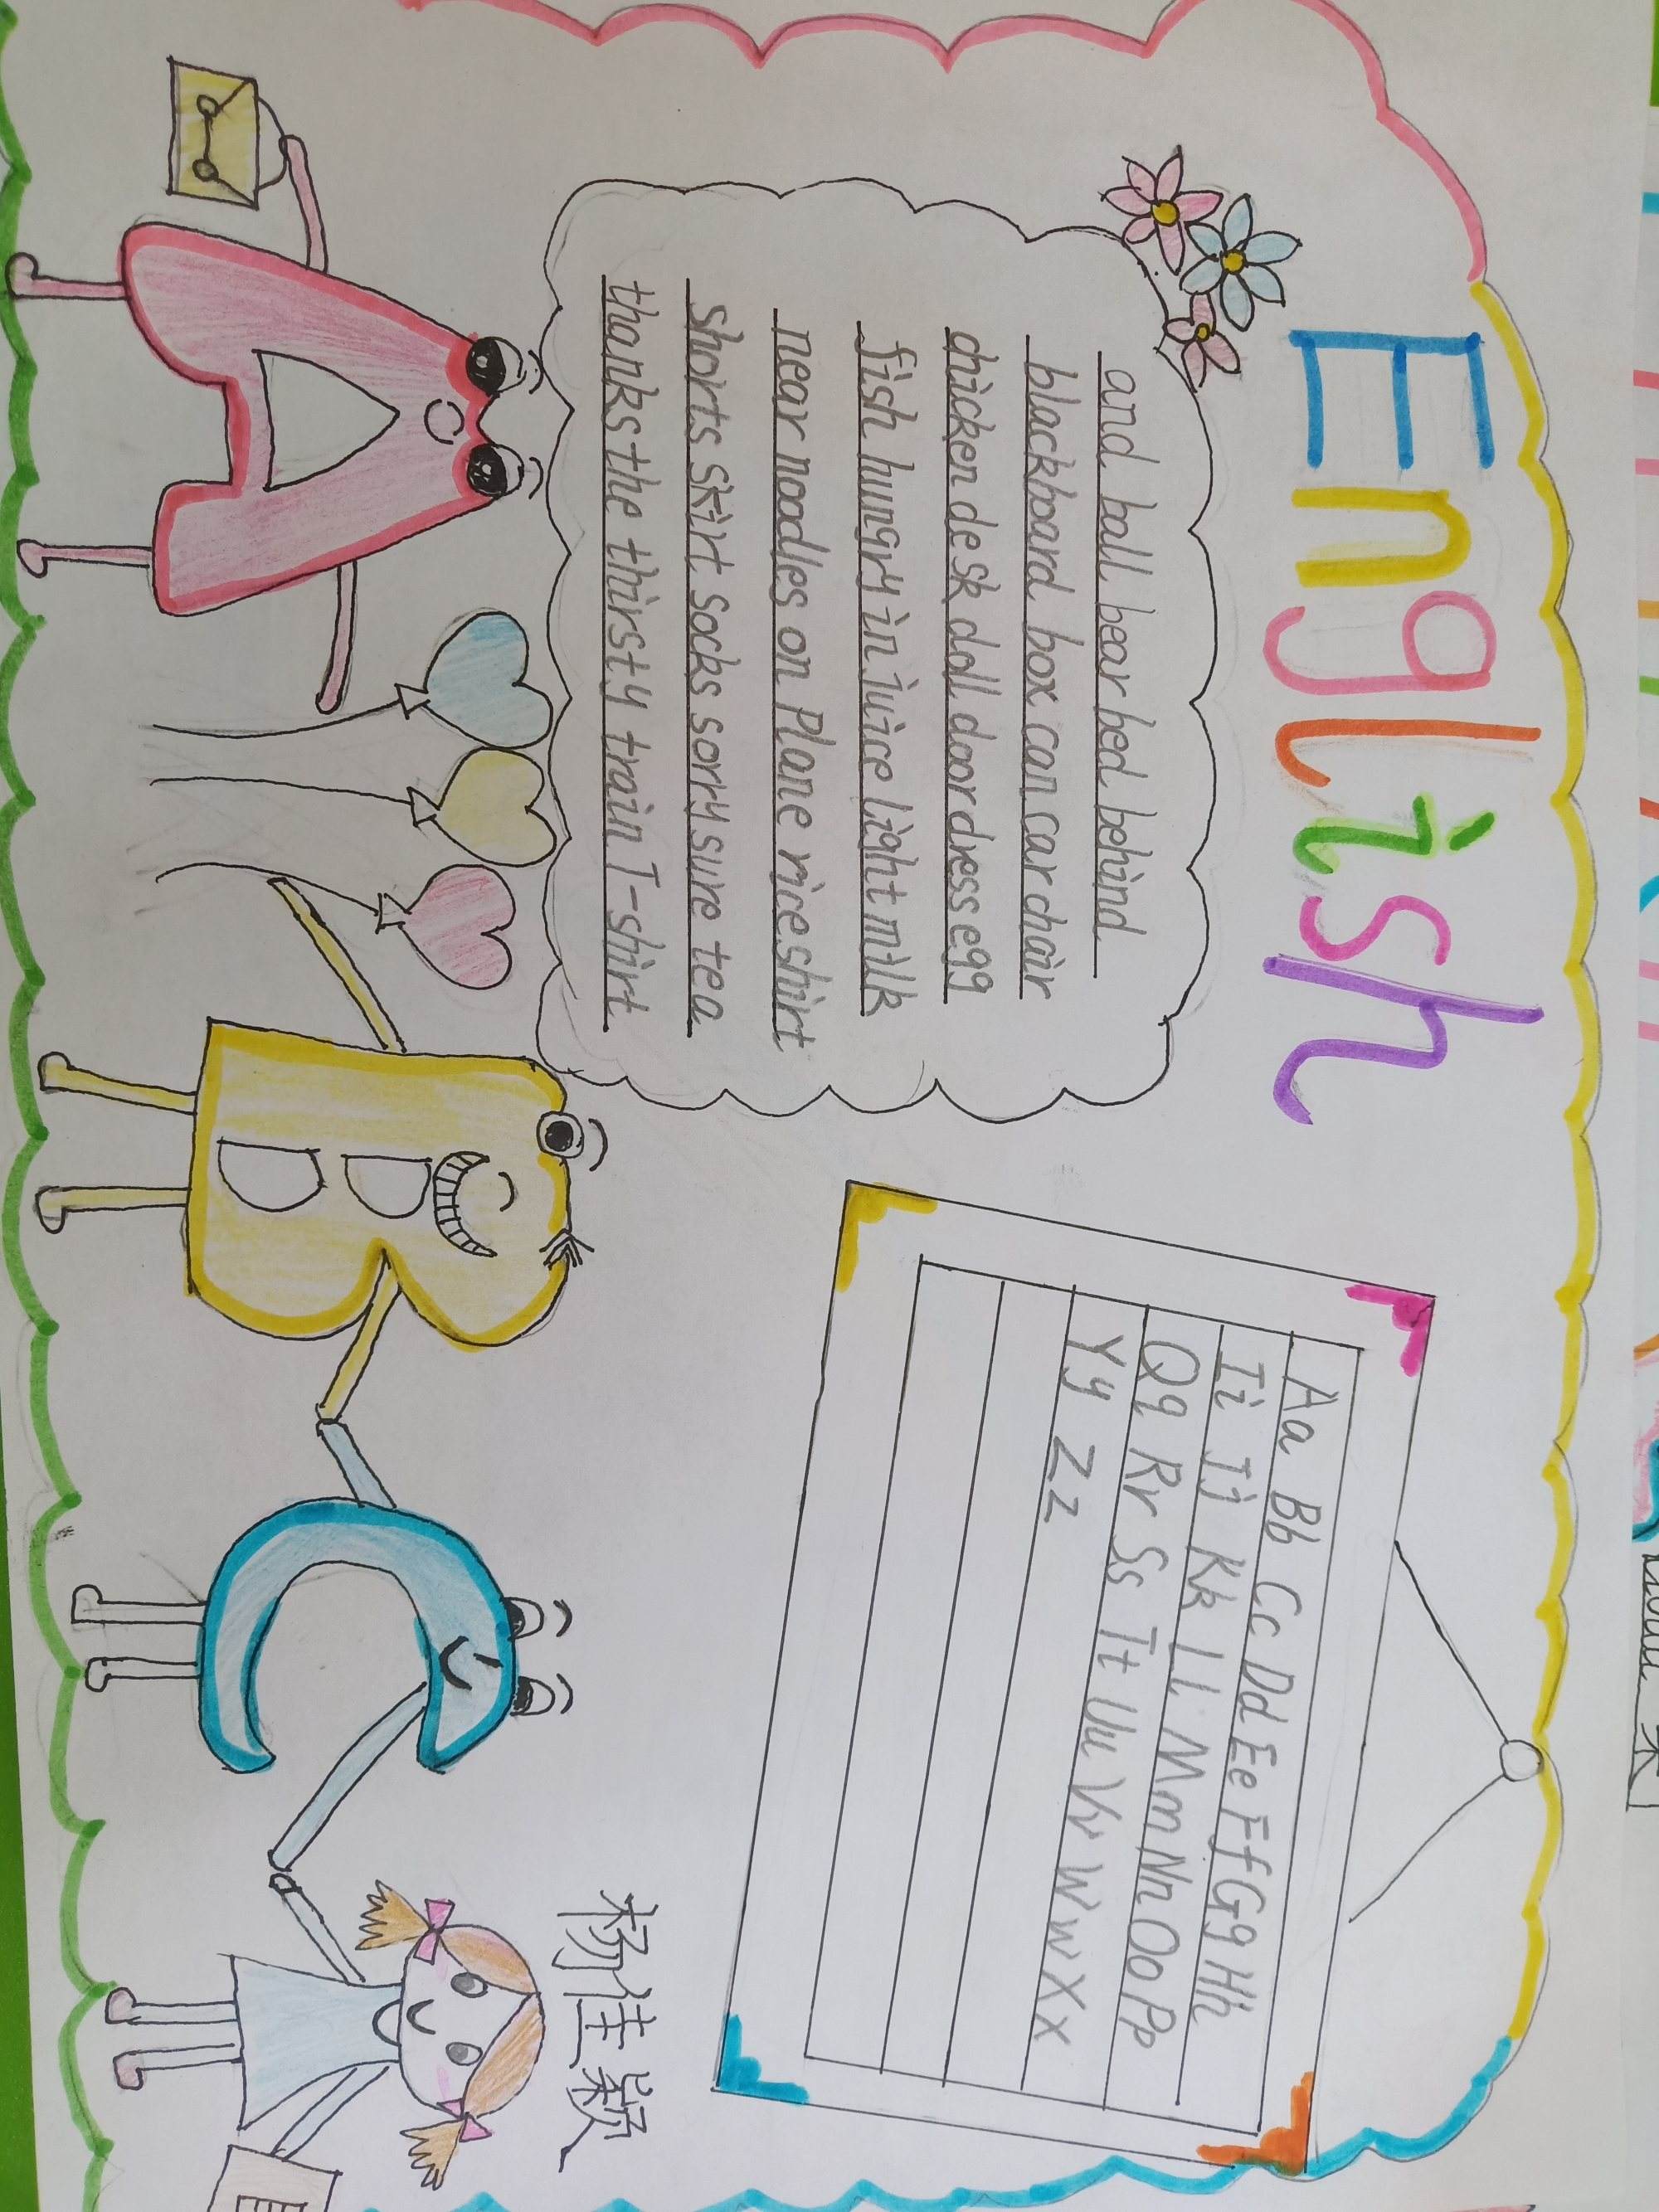 English
and ball bear bed behind
blackboard box can car chair
chicken desk doll door dress egg
fish hungry in juice light milk
near noodles on Plane rice shirt
shorts skirt socks sorry sure tea
thanks the thirsty train T-shirt
Aa Bb Cc Dd Ee Ff Gg Hh
Ii Jj Kk Ll Mm Nn Oo Pp
Qq Rr Ss Tt Uu Vv Ww Xx
Yy Zz
杨佳颖
A B C